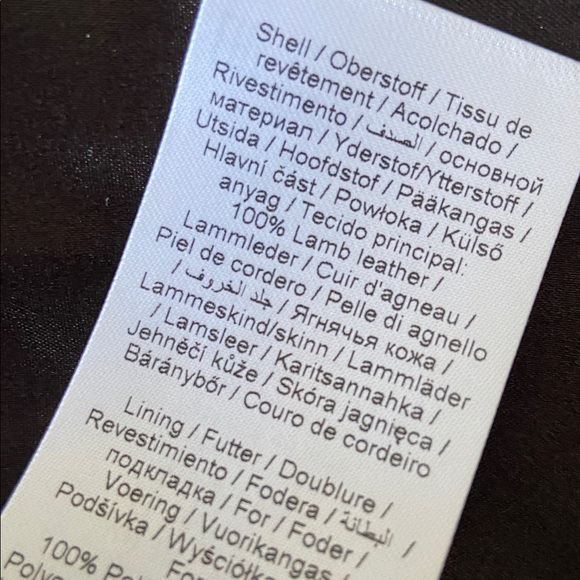 Shell / Oberstoff / Tissu de
revêtement / Acolchado /
Rivestimento / الصدف / основной
материал / Yderstof/Ytterstoff /
Utsida / Hoofdstof / Pääkangas /
Hlavní část / Powłoka / Külső
anyag / Tecido principal:
100% Lamb leather /
Lammleder / Cuir d'agneau /
Piel de cordero / Pelle di agnello
/ جلد الخروف / Ягнячья кожа /
Lammeskind/skinn / Lammläder
/ Lamsleer / Karitsannahka /
Jehněčí kůže / Skóra jagnięca /
Báránybőr / Couro de cordeiro
Lining / Futter / Doublure /
Revestimiento / Fodera / البطانة /
подкладка / For / Foder /
Voering / Vuorikangas
Podšívka / Wyściółka
100%